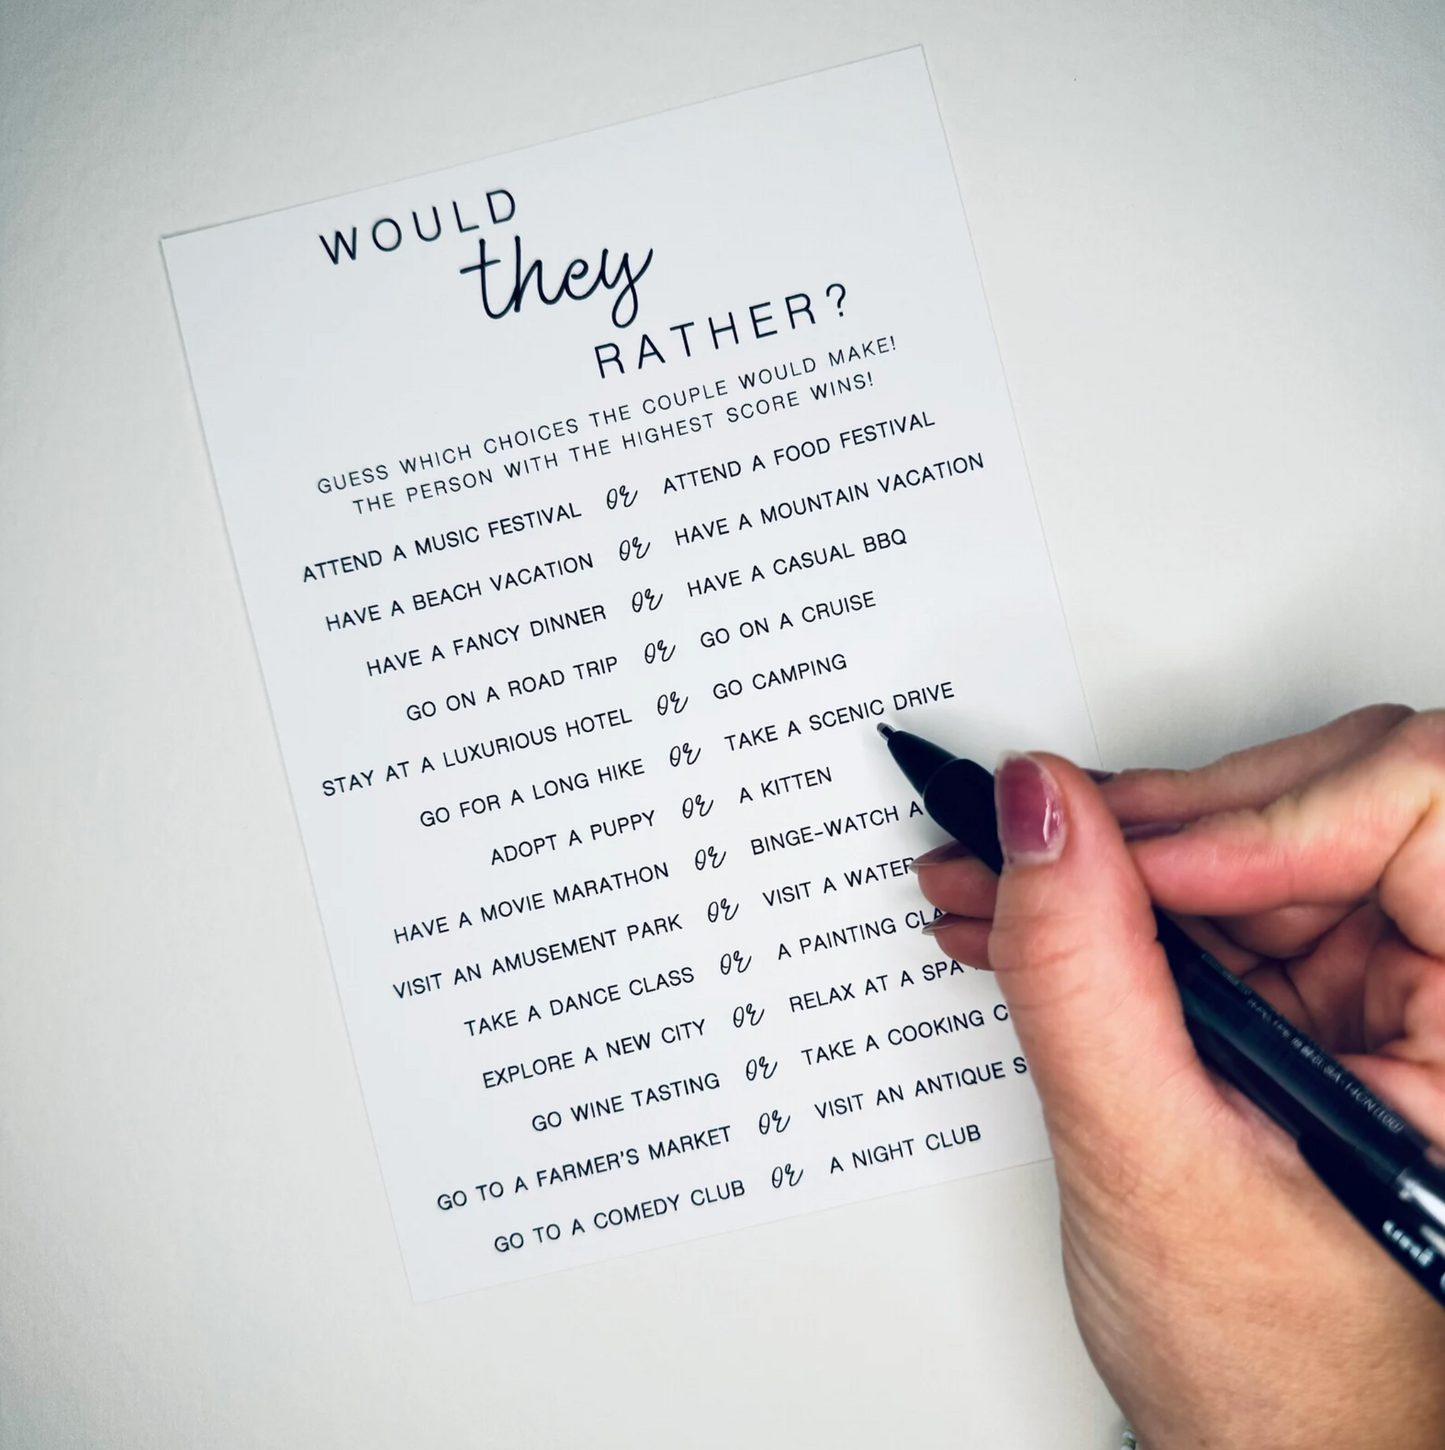 WOULD
they
RATHER?
GUESS WHICH CHOICES THE COUPLE WOULD MAKE!
THE PERSON WITH THE HIGHEST SCORE WINS!
ATTEND A MUSIC FESTIVAL or ATTEND A FOOD FESTIVAL
HAVE A BEACH VACATION or HAVE A MOUNTAIN VACATION
HAVE A FANCY DINNER or HAVE A CASUAL BBQ
GO ON A ROAD TRIP or GO ON A CRUISE
STAY AT A LUXURIOUS HOTEL or GO CAMPING
GO FOR A LONG HIKE or TAKE A SCENIC DRIVE
ADOPT A PUPPY or A KITTEN
HAVE A MOVIE MARATHON or BINGE-WATCH A
VISIT AN AMUSEMENT PARK or VISIT A WATER
TAKE A DANCE CLASS or A PAINTING
EXPLORE A NEW CITY or RELAX AT A SPA
GO WINE TASTING or TAKE A COOKING
GO TO A FARMER'S MARKET or VISIT AN ANTIQUE
GO TO A COMEDY CLUB or A NIGHT CLUB
uni